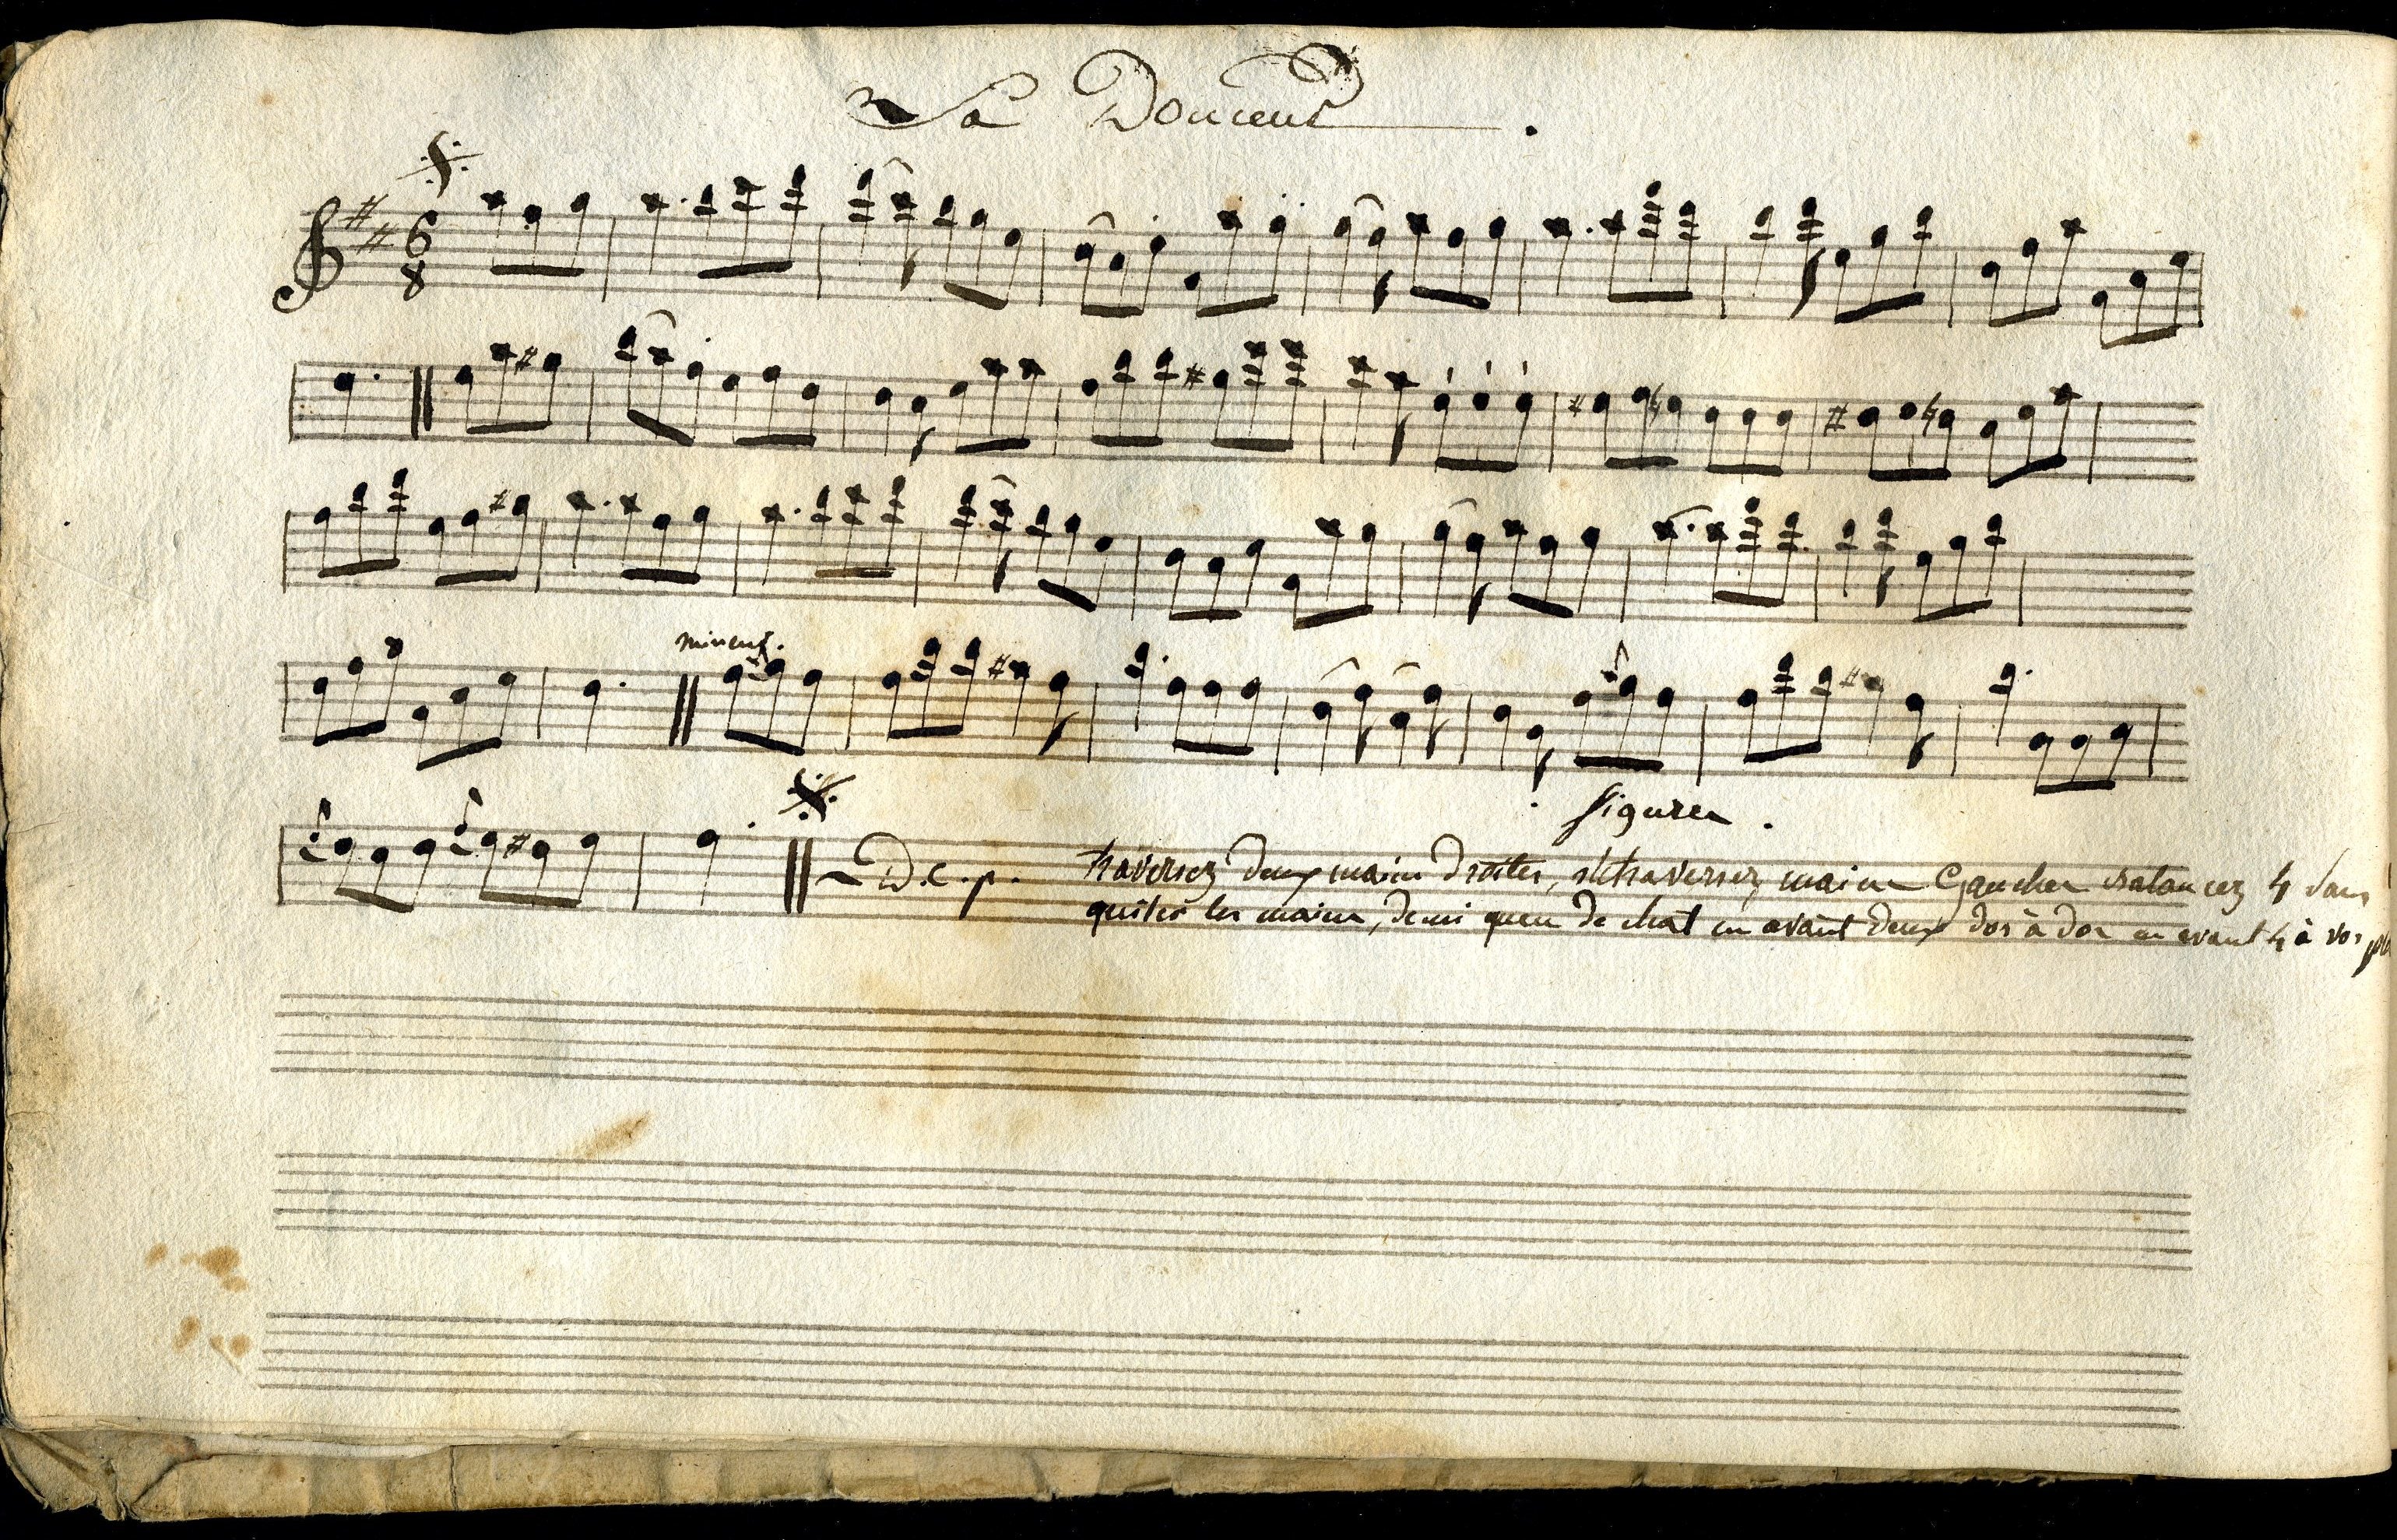 La Douceur.
6
8
mineur.
figures.
D.C.p. traversez deux mains droites, retraversez mains Gauches balancez 4 sans
quiter les mains, demi queu de chat en avant deux dos à dos en avant 4 à vos